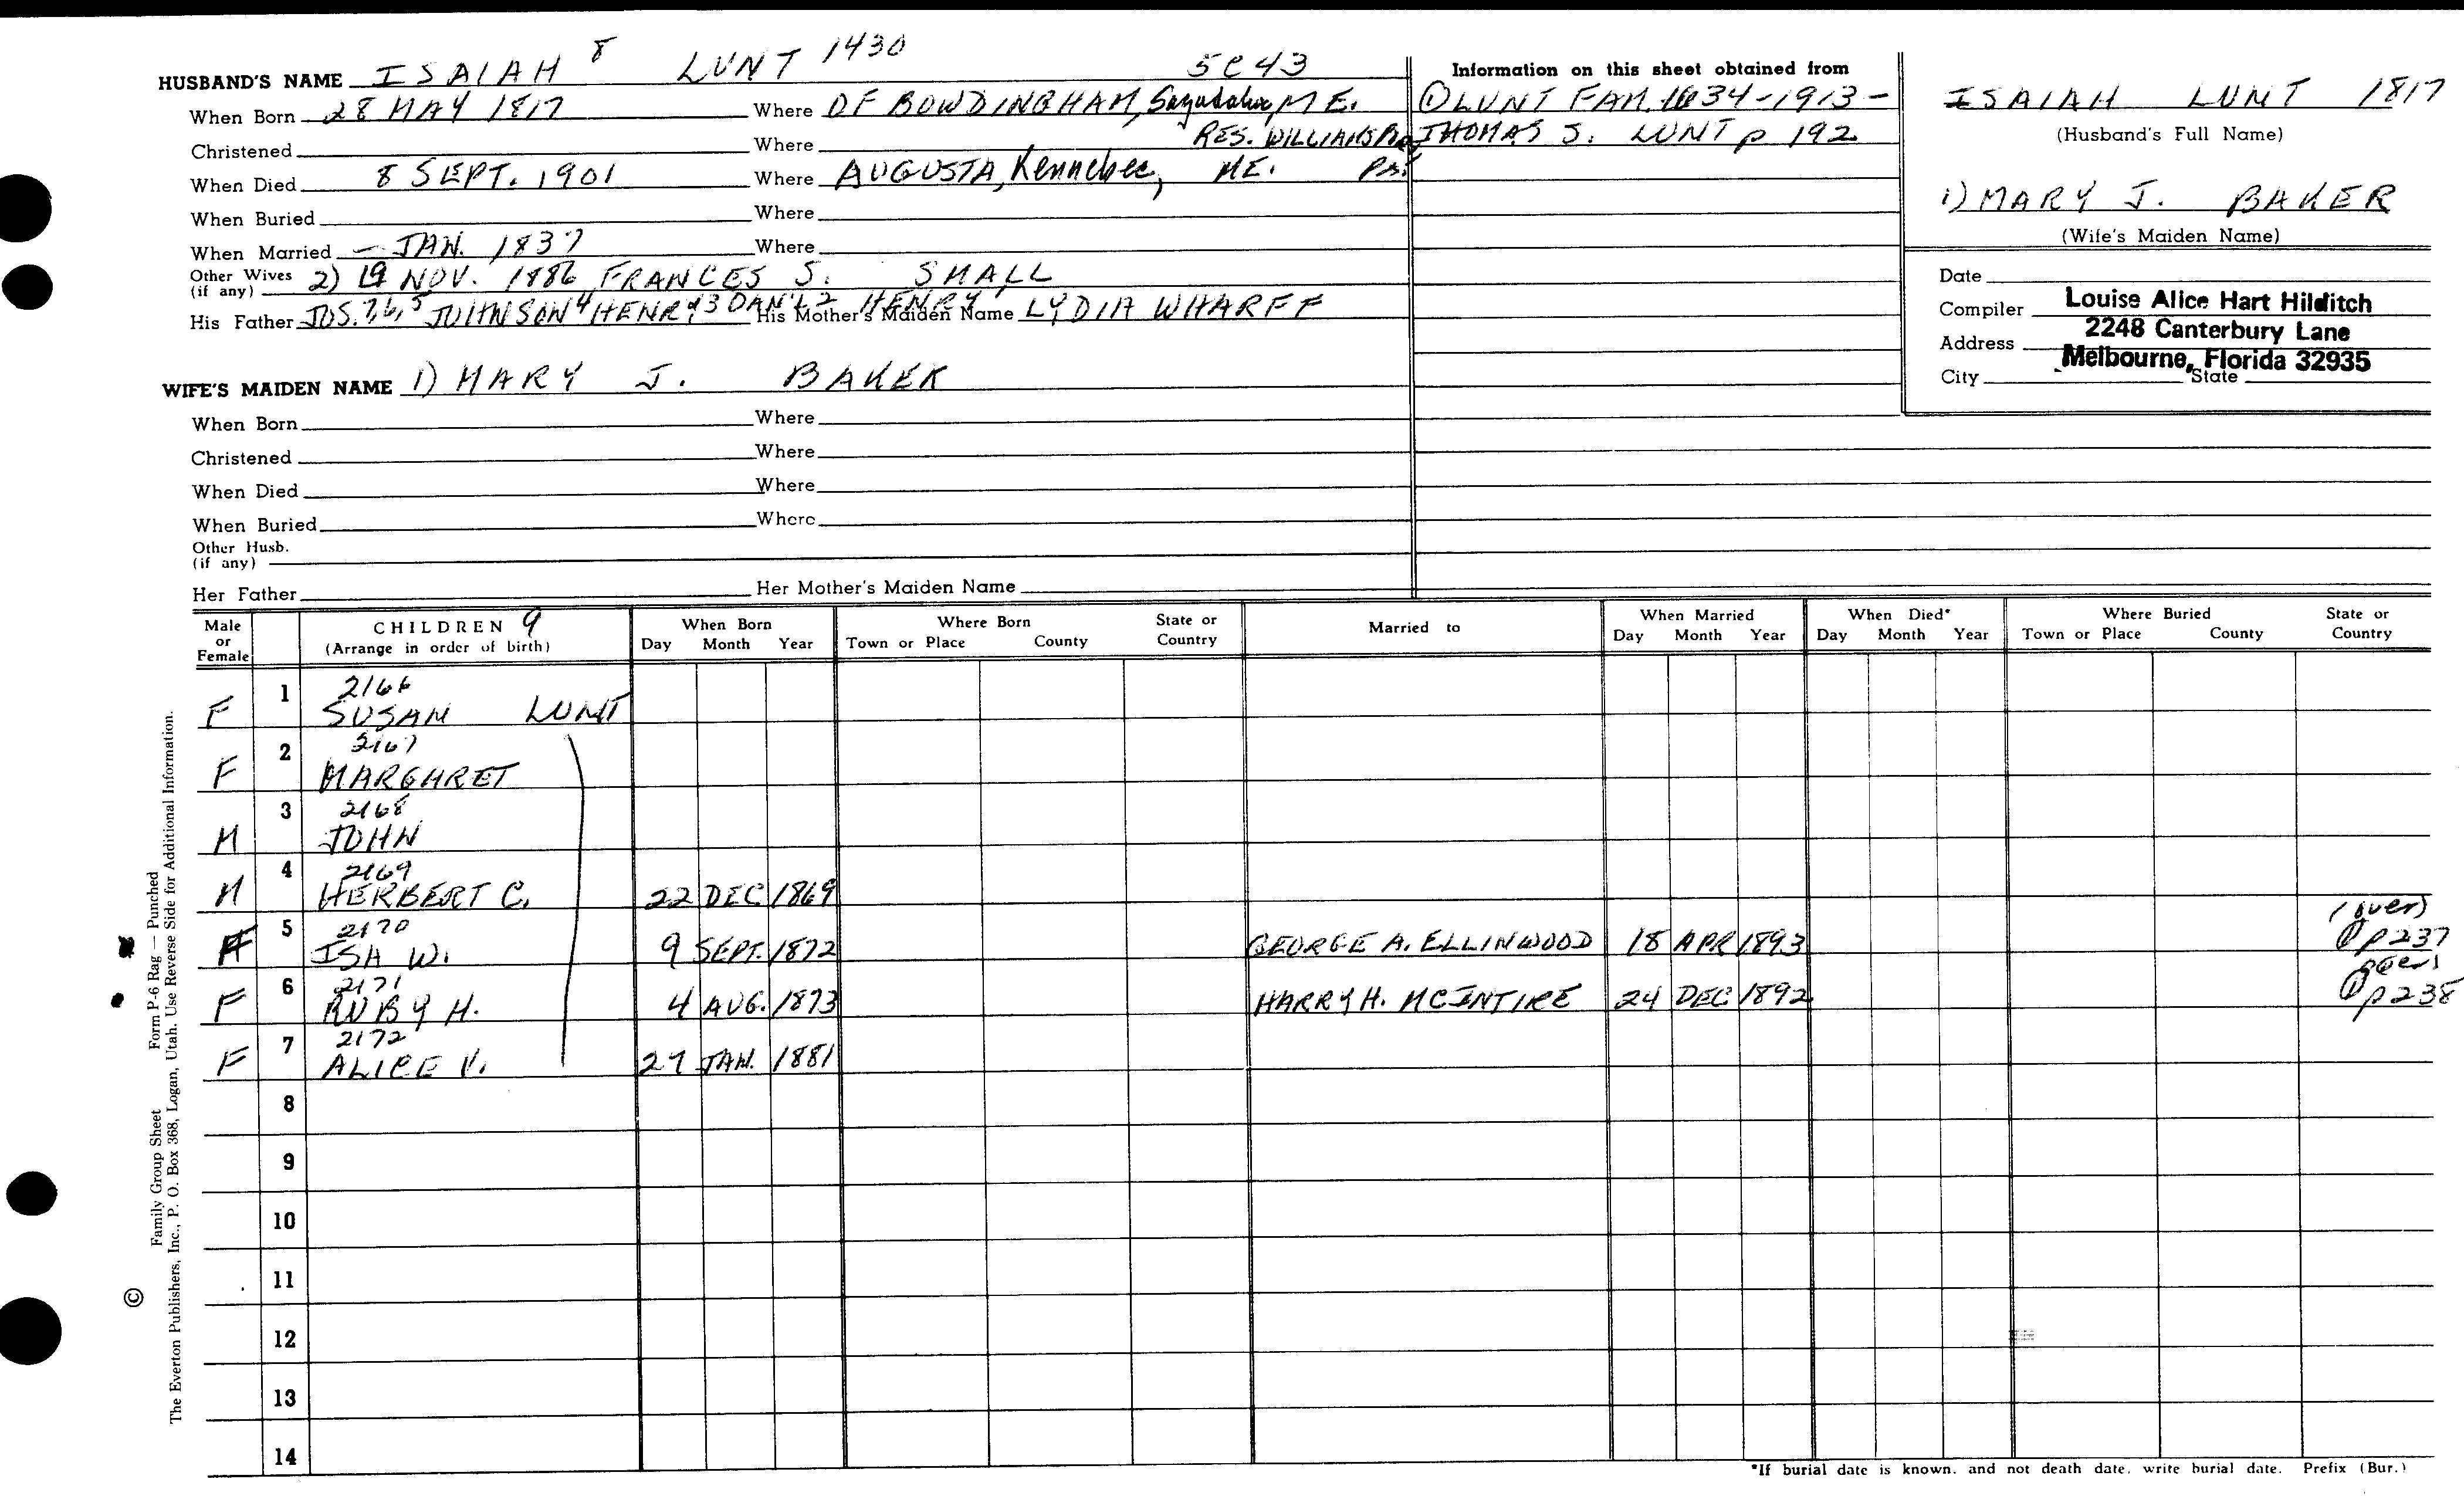 HUSBAND'S NAME ISAIAH 8 LUNT 1430 5C43
When Born 28 MAY 1817 Where OF BOWDINGHAM, Sagadahoc, ME.
RES. WILLIAMSPORT, Pa.
Christened Where
When Died 8 SEPT. 1901 Where AUGUSTA, Kennebec, ME.
When Buried Where
When Married — JAN. 1837 Where
Other Wives (if any) 2) 19 NOV. 1886 FRANCES S. SMALL
His Father JOS.7,6,5 JOHNSON4 HENRY3 DAN'L2 HENRY1 His Mother's Maiden Name LYDIA WHARFF
Information on this sheet obtained from
① LUNT FAM. 1634-1913-
THOMAS S. LUNT p 192
ISAIAH LUNT 1817
(Husband's Full Name)
1) MARY J. BAKER
(Wife's Maiden Name)
Date
Compiler Louise Alice Hart Hilditch
Address 2248 Canterbury Lane
City Melbourne, Florida 32935 State
WIFE'S MAIDEN NAME 1) MARY J. BAKER
When Born Where
Christened Where
When Died Where
When Buried Where
Other Husb.
(if any)
Her Father Her Mother's Maiden Name
Male or Female CHILDREN 9 (Arrange in order of birth) When Born Day Month Year Where Born Town or Place County State or Country Married to When Married Day Month Year When Died* Day Month Year Where Buried Town or Place County State or Country
2166
F 1 SUSAN LUNT
2167
F 2 MARGHRET
2168
M 3 JOHN
2169
M 4 HERBERT C. 22 DEC 1869
2170 (over)
F 5 ISA W. 9 SEPT. 1872 GEORGE A. ELLINWOOD 18 APR 1893 ① p237
2171 over
F 6 RUBY H. 4 AUG. 1873 HARRY H. MCINTIRE 24 DEC 1892 ① p238
2172
F 7 ALICE V. 27 JAN. 1881
8
9
10
11
12
13
14
*If burial date is known, and not death date, write burial date. Prefix (Bur.)
© Family Group Sheet Form P-6 Rag — Punched
The Everton Publishers, Inc., P. O. Box 368, Logan, Utah. Use Reverse Side for Additional Information.